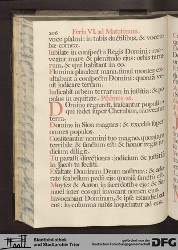 206 Feria VI. ad Matutinum.
voce psalmi: in tubis ductilibus, & voce
tubæ corneæ.
Jubilate in conspectu Regis Domini: mo-
veatur mare & plenitudo ejus: orbis terra-
rum, & qui habitant in eo.
Flumina plaudent manu, simul montes ex-
ultabunt à conspectu Domini: quoniam ve-
nit judicare terram.
Judicabit orbem terrarum in justitia: & po-
pulos in æquitate. Psalmus 98.
Dominus regnavit, irascantur populi:
qui sedet super Cherubim, moveatur
terra.
Dominus in Sion magnus: & excelsus super
omnes populos.
Confiteantur nomini tuo magno, quoniam
terribile & sanctum est: & honor regis ju-
dicium diligit.
Tu parasti directiones: judicium & justitiam
in Jacob tu fecisti.
Exaltate Dominum Deum nostrum: & ado-
rate scabellum pedum ejus: quoniam sanctum est.
Moyses & Aaron in sacerdotibus ejus: & Sa-
muel inter eos qui invocant nomen ejus.
Invocabant Dominum, & ipse exaudiebat
eos: in columna nubis loquebatur ad eos.
Stadtbibliothek
und Stadtarchiv Trier
gefördert von der
DFG